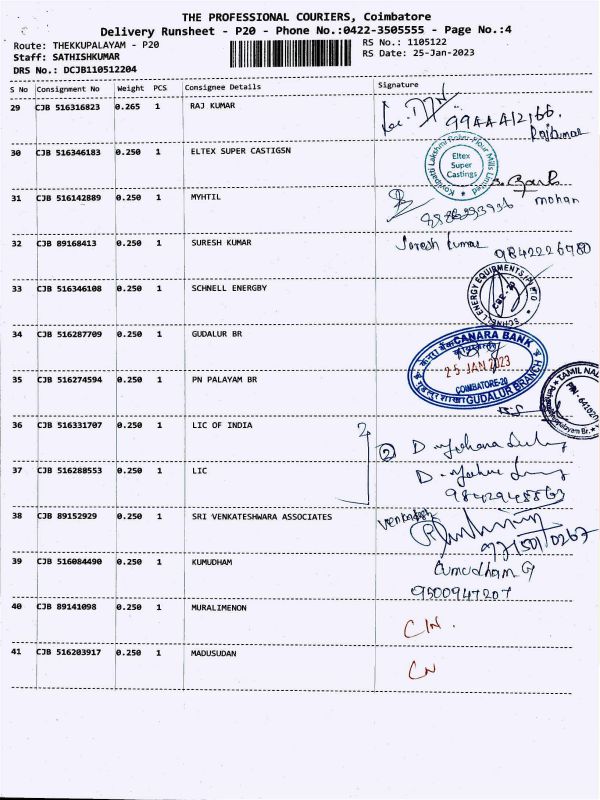 THE PROFESSIONAL COURIERS, Coimbatore
Delivery Runsheet - P20 - Phone No.:0422-3505555 - Page No.:4
Route: THEKKUPALAYAM - P20
RS No.: 1105122
Staff: SATHISHKUMAR
RS Date: 25-Jan-2023
DRS No.: DCJB110512204
S No Consignment No Weight PCS Consignee Details Signature
29 CJB 516316823 0.265 1 RAJ KUMAR
9944412166.
Rajkumar
30 CJB 516346183 0.250 1 ELTEX SUPER CASTIGSN
Eltex
Super
Castings
31 CJB 516142889 0.250 1 MYHTIL
mohan
32 CJB 89168413 0.250 1 SURESH KUMAR
Suresh Kumar
9842226980
33 CJB 516346108 0.250 1 SCHNELL ENERGBY
SCHNELL ENERGY EQUIPMENTS (P) LTD
34 CJB 516287709 0.250 1 GUDALUR BR
CANARA BANK
25 JAN 2023
COIMBATORE-29
GUDALUR BRANCH
35 CJB 516274594 0.250 1 PN PALAYAM BR
36 CJB 516331707 0.250 1 LIC OF INDIA
2
37 CJB 516288553 0.250 1 LIC
38 CJB 89152929 0.250 1 SRI VENKATESHWARA ASSOCIATES
Venkatesh
9715010267
39 CJB 516084490 0.250 1 KUMUDHAM
Cumudham G
9500947207
40 CJB 89141098 0.250 1 MURALIMENON
C/N.
41 CJB 516203917 0.250 1 MADUSUDAN
CN